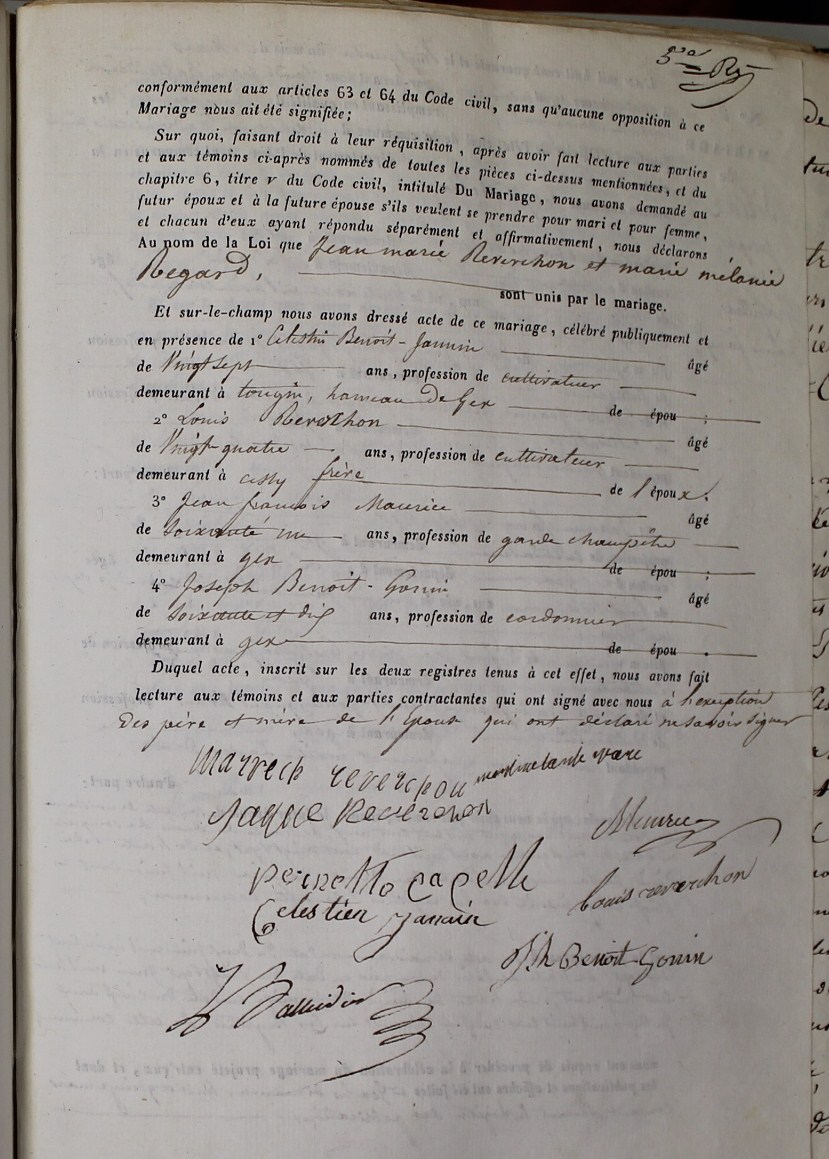 conformément aux articles 63 et 64 du Code civil, sans qu'aucune opposition à ce
Mariage nous ait été signifiée;
Sur quoi, faisant droit à leur réquisition, après avoir fait lecture aux parties
et aux témoins ci-après nommés de toutes les pièces ci-dessus mentionnées, et du
chapitre 6, titre v du Code civil, intitulé Du Mariage, nous avons demandé au
futur époux et à la future épouse s'ils veulent se prendre pour mari et pour femme,
et chacun d'eux ayant répondu séparément et affirmativement, nous déclarons
Au nom de la Loi que Jean marie Reverchon et marie mélanie
Regard, sont unis par le mariage.
Et sur-le-champ nous avons dressé acte de ce mariage, célébré publiquement et
en présence de 1° Celestin Benoit-Jannin âgé
de Vingt sept ans, profession de cultivateur
demeurant à tougin, hameau De Gex de épou ;
2° Louis Reverchon âgé
de Vingt-quatre ans, profession de cultivateur
demeurant à cessy frère de l'époux;
3° Jean françois Maurice âgé
de soixante un ans, profession de garde champêtre
demeurant à gex de épou ;
4° Joseph Benoit-Gonin âgé
de soixante et dix ans, profession de cordonnier
demeurant à gex de épou .
Duquel acte, inscrit sur les deux registres tenus à cet effet, nous avons fait
lecture aux témoins et aux parties contractantes qui ont signé avec nous à l'exception
Des père et mère de l'Epouse qui ont déclaré ne savoir signer
reverchon
Jaque Reverchon
Maurice
pernette
Louis reverchon
Celestien Jannin
Jh Benoit-Gonin